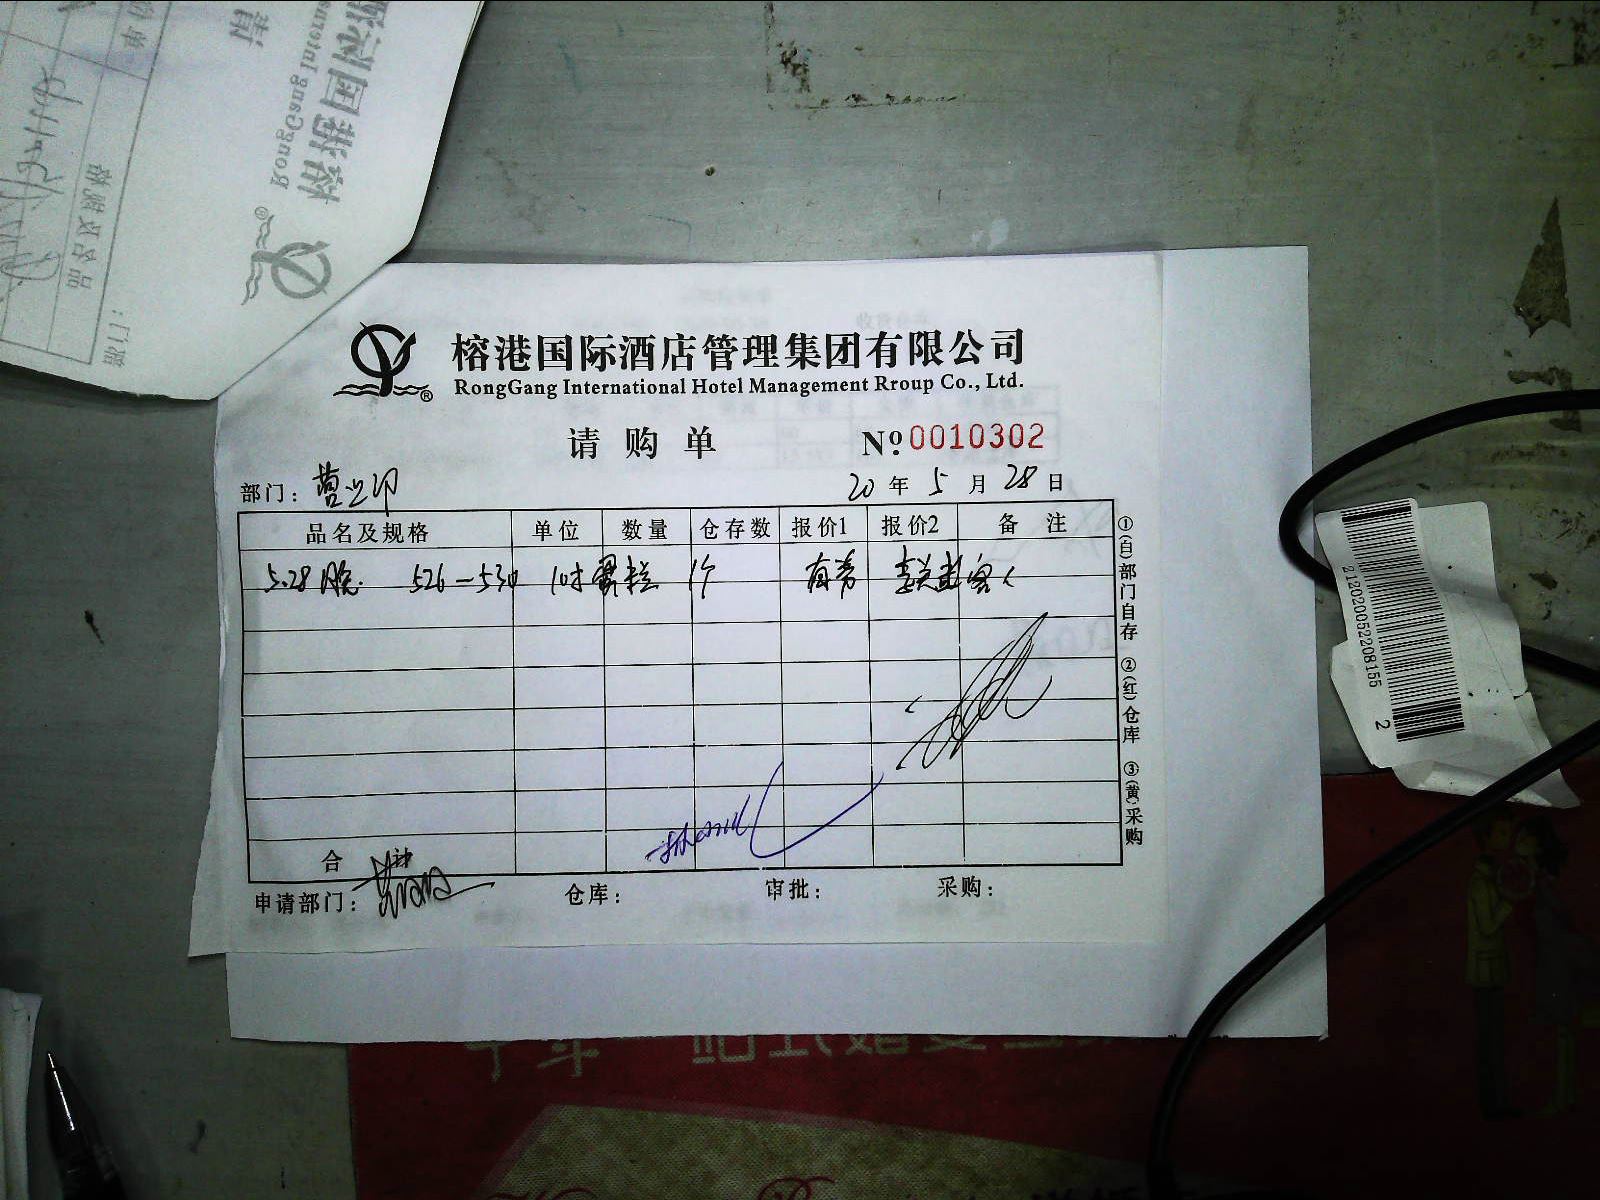 榕港国际酒店管理集团有限公司
RongGang International Hotel Management Rroup Co., Ltd.
请购单 №0010302
部门: 营业部 20年5月28日
品名及规格 单位 数量 仓存数 报价1 报价2 备注
5.28晚. 526-530 10寸蛋糕 1个 客人
合计
申请部门: 仓库: 审批: 采购:
①(白)部门自存 ②(红)仓库 ③(黄)采购
212020052208155
2
榕港国际
RongGang Interna
请
部门:
品名及规格
单